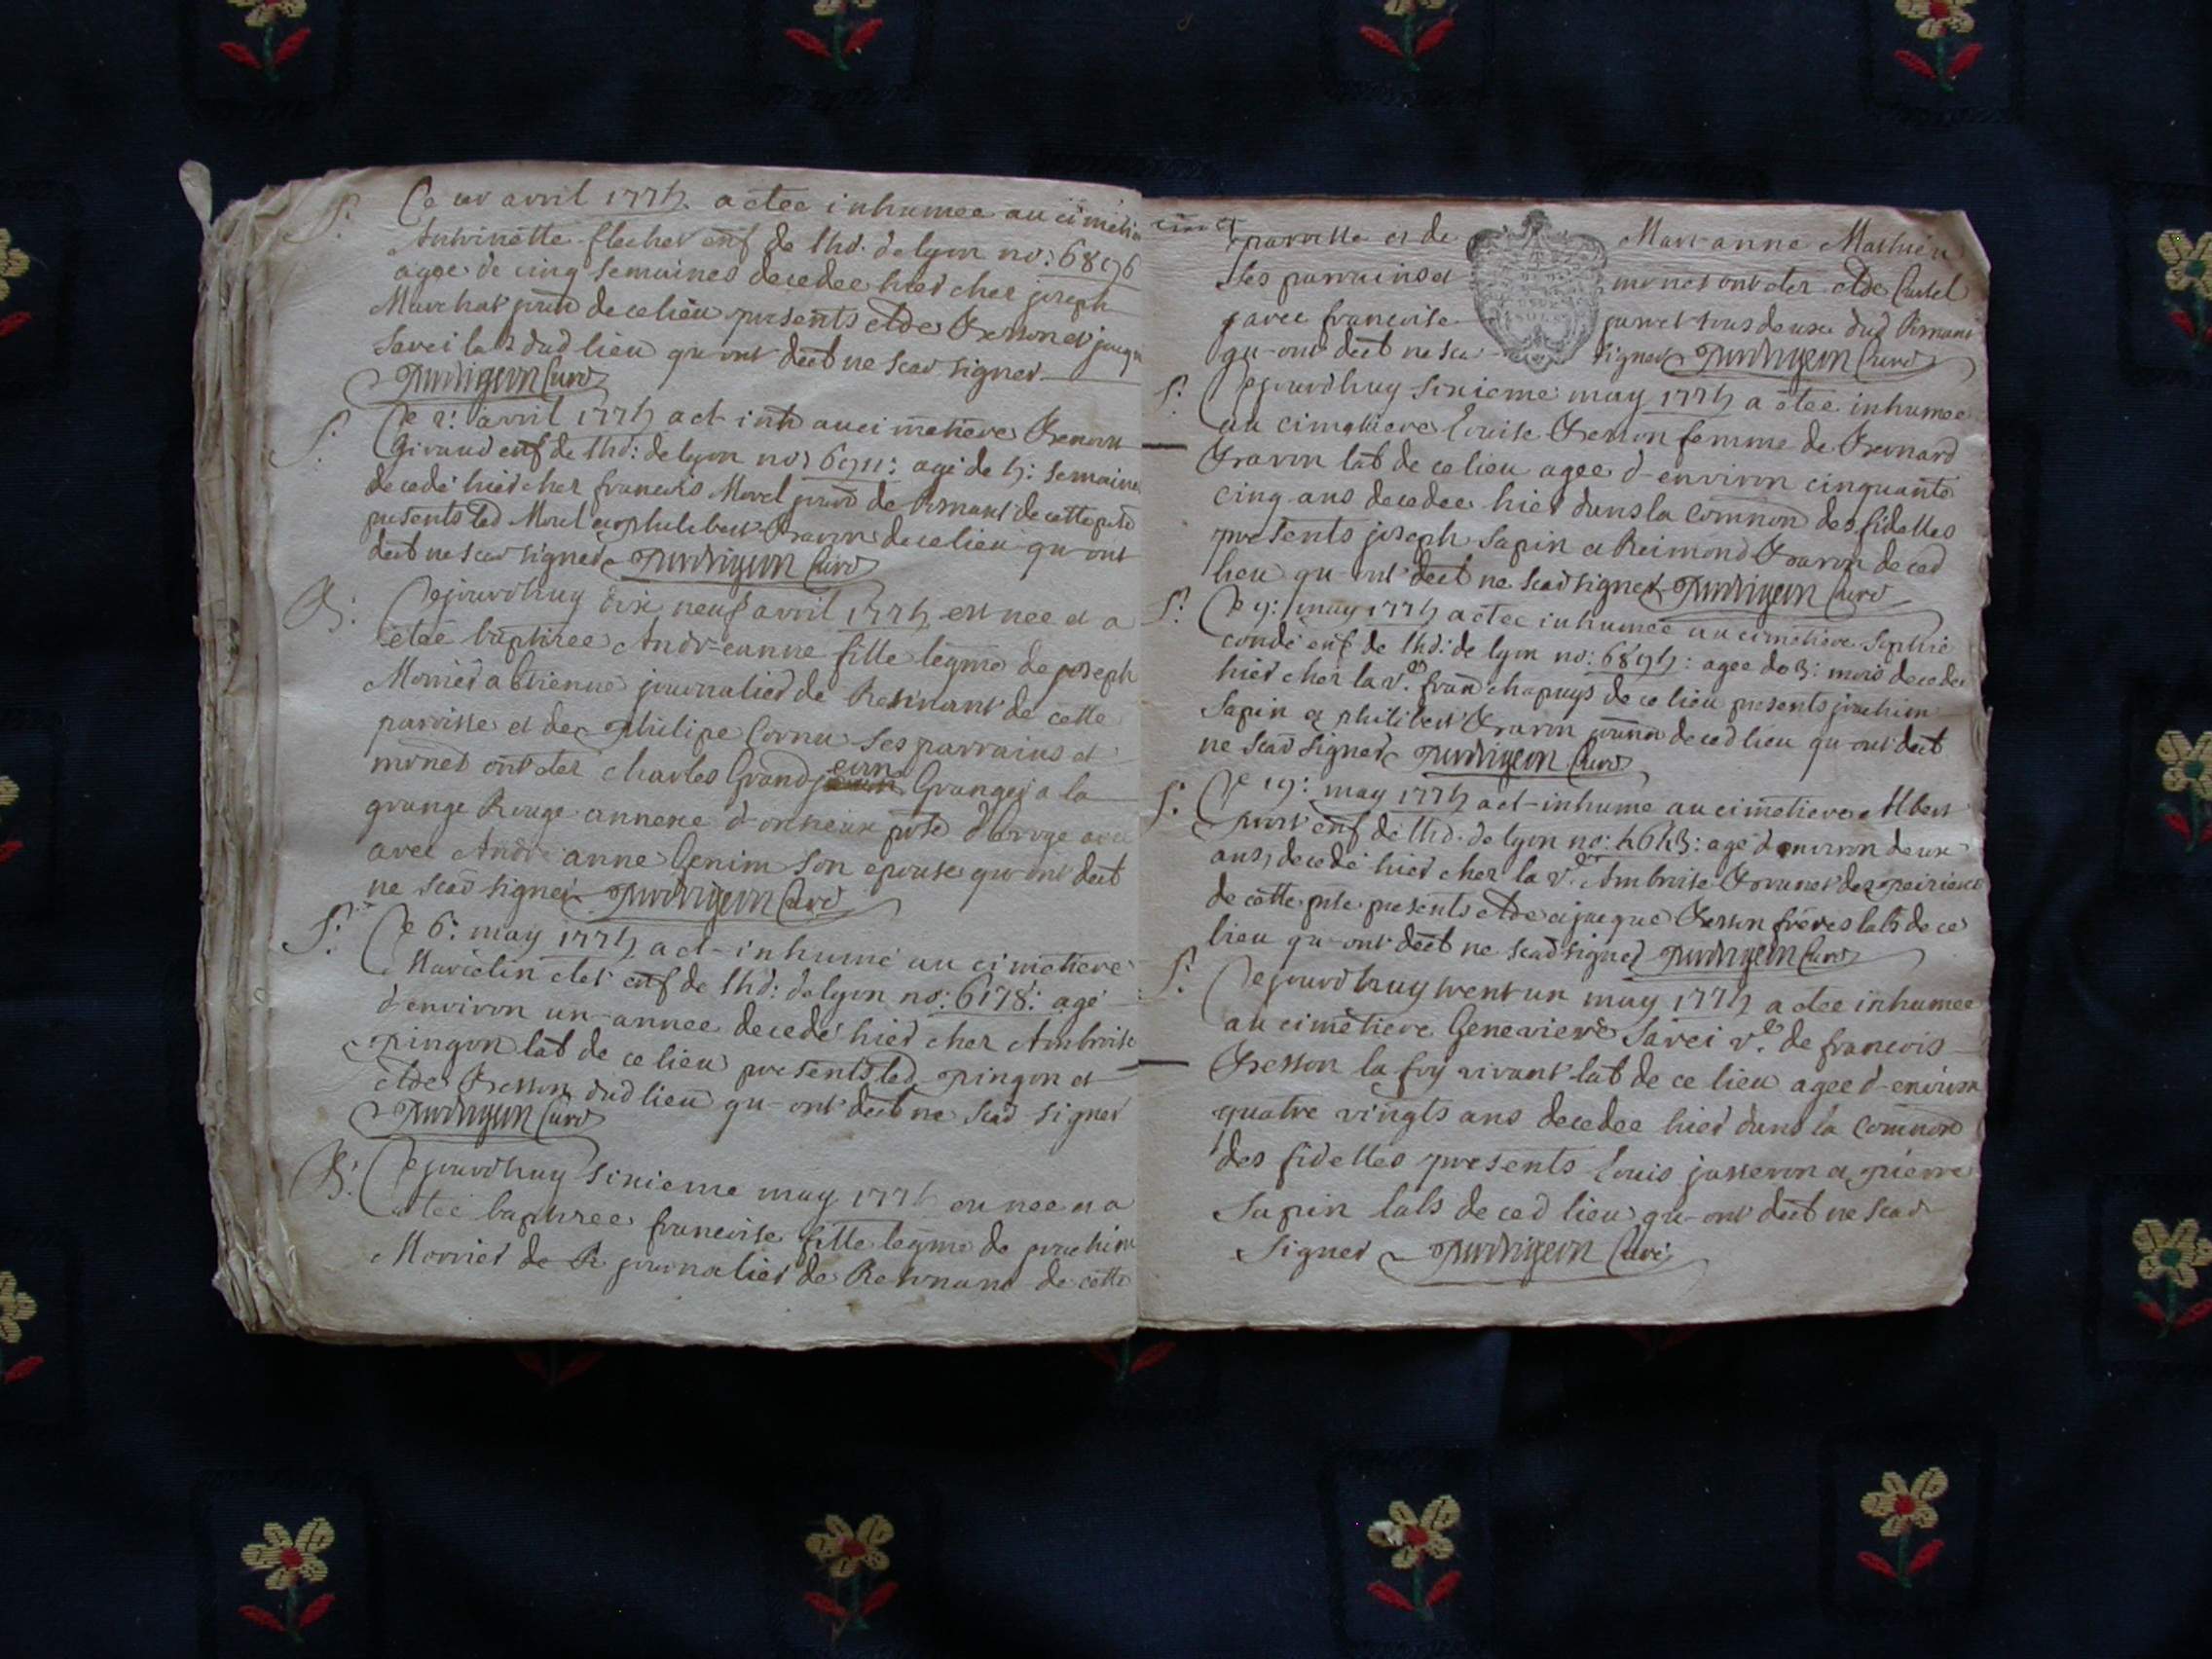 S. Ce 1er avril 1774 a étée inhumée au cimetie
Antoinette flecher enf de lhd. de lyon no: 6896
agée de cinq semaines decedée hier chez joseph
Marchat jourd de ce lieu présents clde Besson et jaque
Savei labs dud lieu qu-ont deét ne scav signer
Curé
S. Ce 2: avril 1774 a ét inh au cimetiere Benoit
Giraud enf de lhd: de lyon no: 6911: agé de 4: semaines
decedé hier chez francois Morel jourd de Romans de cette psse
présents led Morel et philebert Bravon de ce lieu qu-ont
deét ne scav signer Curé
B: Cejourdhuy dix neuf avril 1774 est née et a
étée baptizee Andr-eanne fille legme de joseph
Monier abtienne journalier de Resinant de cette
paroisse et de philipe Cornu ses parrains et
monet ont eter charles Grandjean Granger a la
grange Rouge annexe d-onneux psse
avec André anne Genim son epouse qu-ont deét
ne scav signer Curé
S. Ce 6: may 1774 a ét-inhumé au cimetiere
Marcelin clet enf de lhd: de lyon no: 6178: agé
d-environ un-année decedé hier chez Ambroise
pingon lab de ce lieu présents led pingon et
clde Besson dud lieu qu-ont deét ne scav signer
Curé
B: Cejourdhuy sixieme may 1774 est née et a
étée baptizee francoise fille legme de joachim
Monier de R journalier de Resinans de cette
paroisse et de Mari-anne Mathieu
ses parrains et monet ont eter clde Cartel
avec francoise tous deux dud Romans
qu-ont deét ne sca signer Curé
S: Cejourdhuy sixieme may 1774 a étée inhumée
au cimetiere Louise Besson femme de Bernard
Bravon lab de ce lieu agee d-environ cinquante
cinq ans decedee hier dans la common des fidelles
présents joseph Sapin et Reimond Bravon de ced
lieu qu-ont deét ne scav signer Curé
S: Ce 9: may 1774 a étée inhumée au cimetiere Sophie
condé enf de lhd: de lyon no: 6894: agee de 3: mois decedee
hier chez la ve. fran chapuys de ce lieu présents joachim
Sapin et philibert Bravon de ced lieu qu-ont deét
ne scav signer Curé
S: Ce 19: may 1774 a ét-inhumé au cimetiere Albert
enf de lhd. de lyon no: 4643: agé d environ deux
ans, decedé hier chez la ve. Ambroise
de cette psse présents clde et jacque Besson fréres labs de ce
lieu qu-ont deét ne scav signer Curé
S: Cejourdhuy trent un may 1774 a étée inhumée
au cimetiere Genevieve Savei ve. de francois
Besson la foy vivant lab de ce lieu agee d-environ
quatre vingts ans decedee hier dans la common
des fidelles présents Louis josseron et pierre
Sapin labs de ced lieu qu-ont deét ne scav
signer Curé